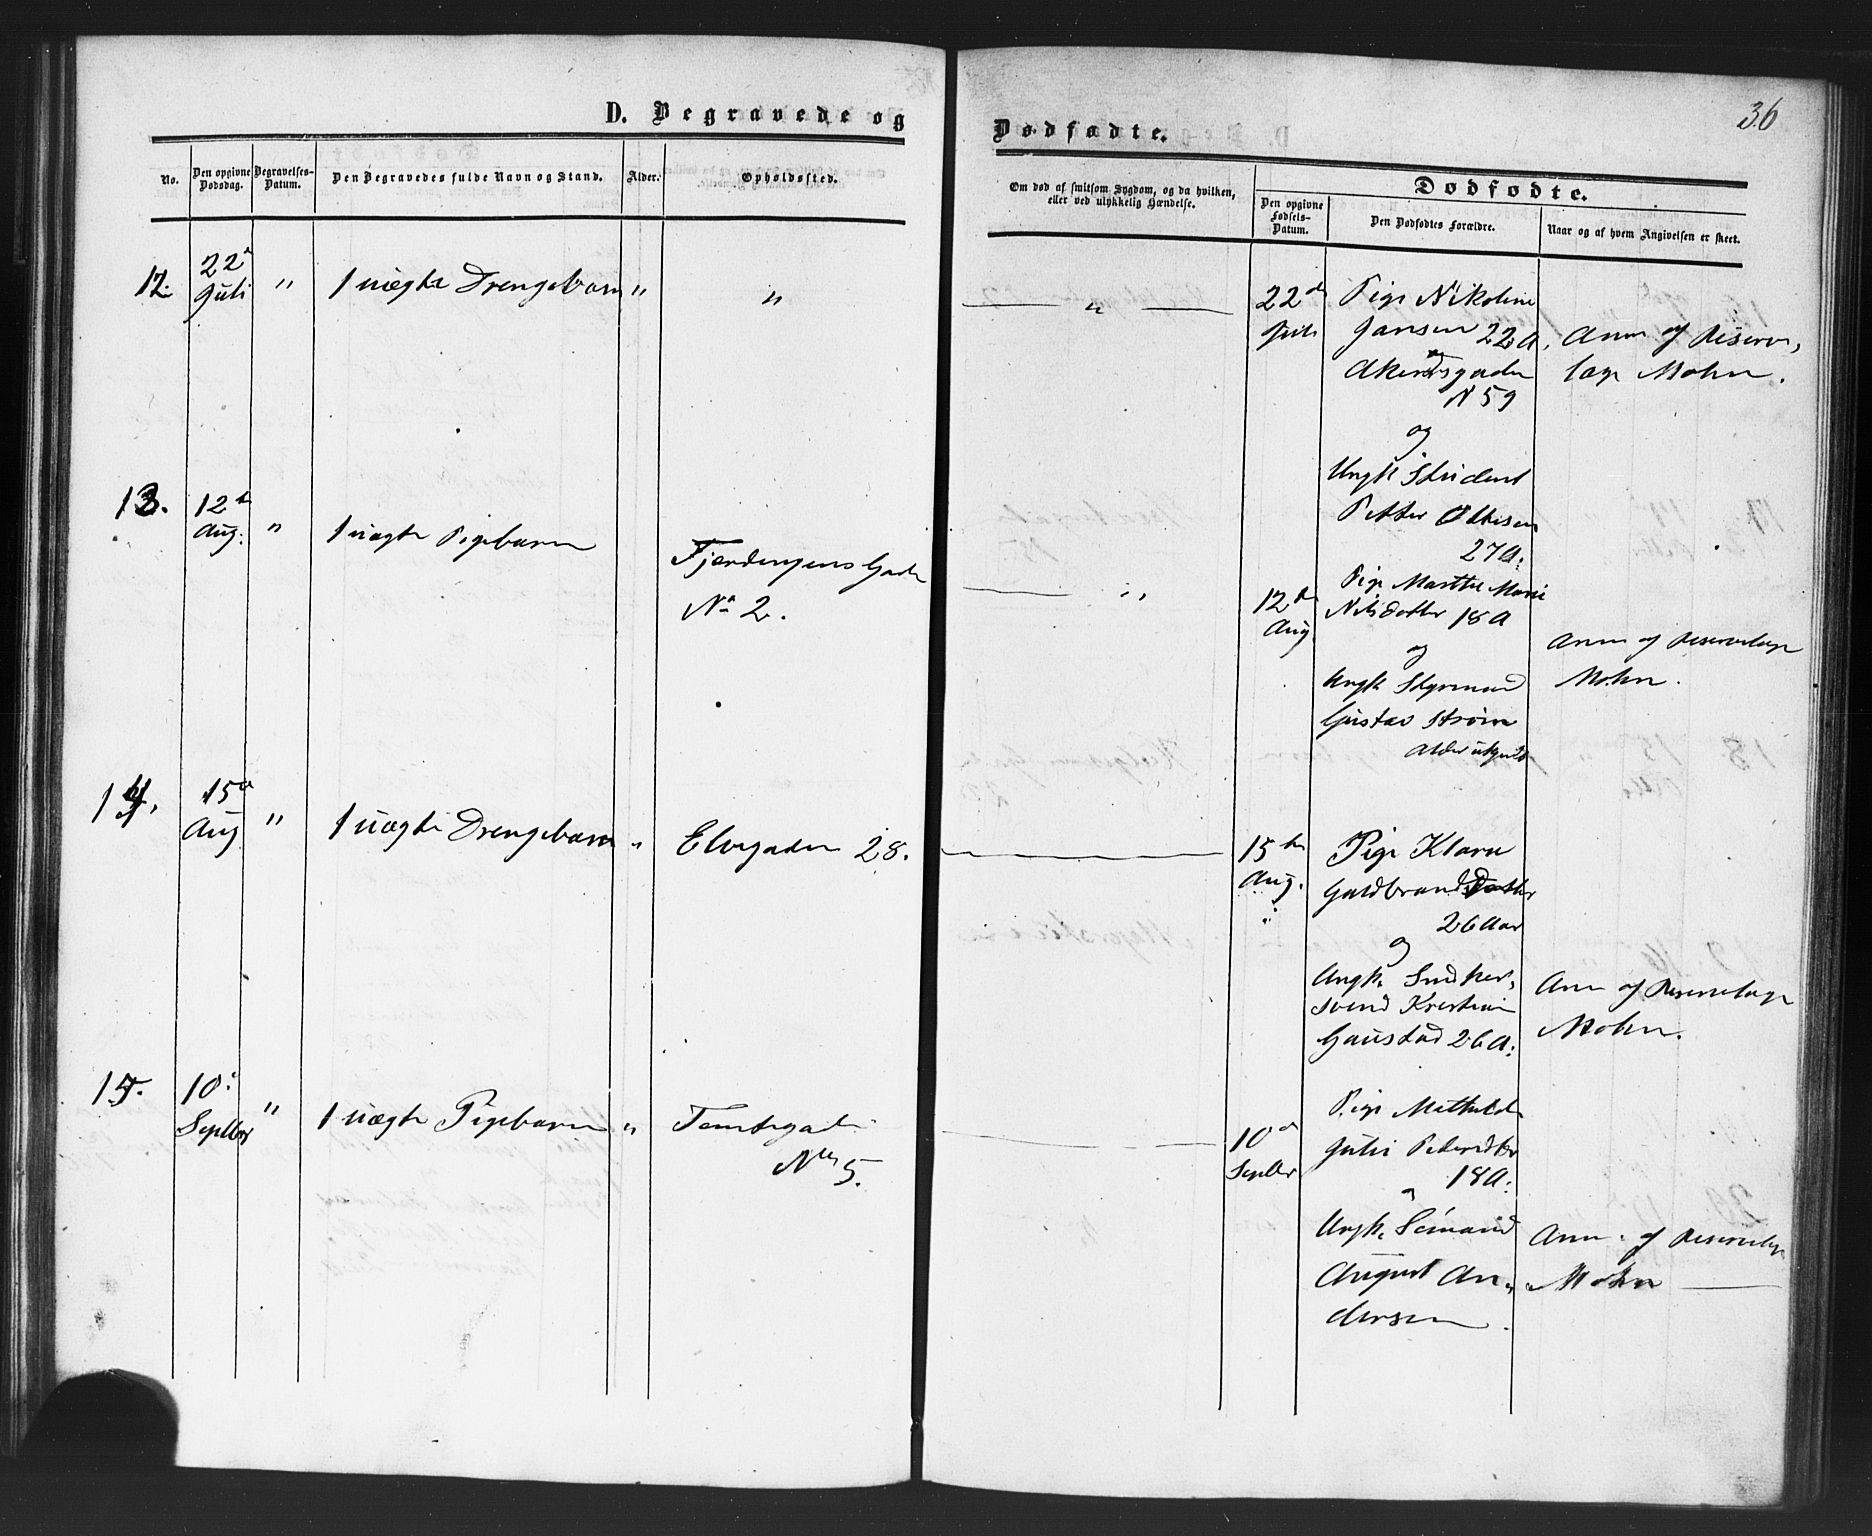 D. Begravede og
Dødfødte.
36
No.
Den opgivne Dødsdag.
Begravelses-Datum.
Den Begravedes fulde Navn og Stand.
Alder.
Opholdssted.
Om død af smitsom Sygdom, og da hvilken,
eller ved ulykkelig Hændelse.
Dødfødte.
Den opgivne Fødsels-Datum.
Den Dødfødtes Forældre.
Naar og af hvem Angivelsen er skeet.
12. 22d Juli " 1 uægte Drengebarn " "
" 22d Juli
Pige Nikoline
Jansen 22 A.
Akersgaden
N 59
og
Ungk Student
Petter
27 A.
Anm af Reserve,
læge Mohn.
13. 12t Aug. " 1 uægte Pigebarn
Fjerdingens Gade
No 2.
" 12t Aug
Pige Marthe Marie
Nilsdatter 18 A
og
Ungk Styrmand
Gustav Strøm
Alder
Anm af Reservelæge
Mohn.
14. 15d Aug " 1 uægte Drengebarn " Elvegaden 28.
15de Aug.
Pige Klara
Guldbrandsdatter
26 Aar
og
Ungk. Snedker,
svend Kristian
Gaustad 26 A.
Anm af Reservelæge
Mohn.
15. 10. Septbr " 1 uægte Pigebarn " Tomtegade
No 5.
10d Septbr
Pige Mathilde
Julie Pedersdtr
18 A.
Ungk. Sømand
August An,
dersen.
Anm. af Reservelæge
Mohn